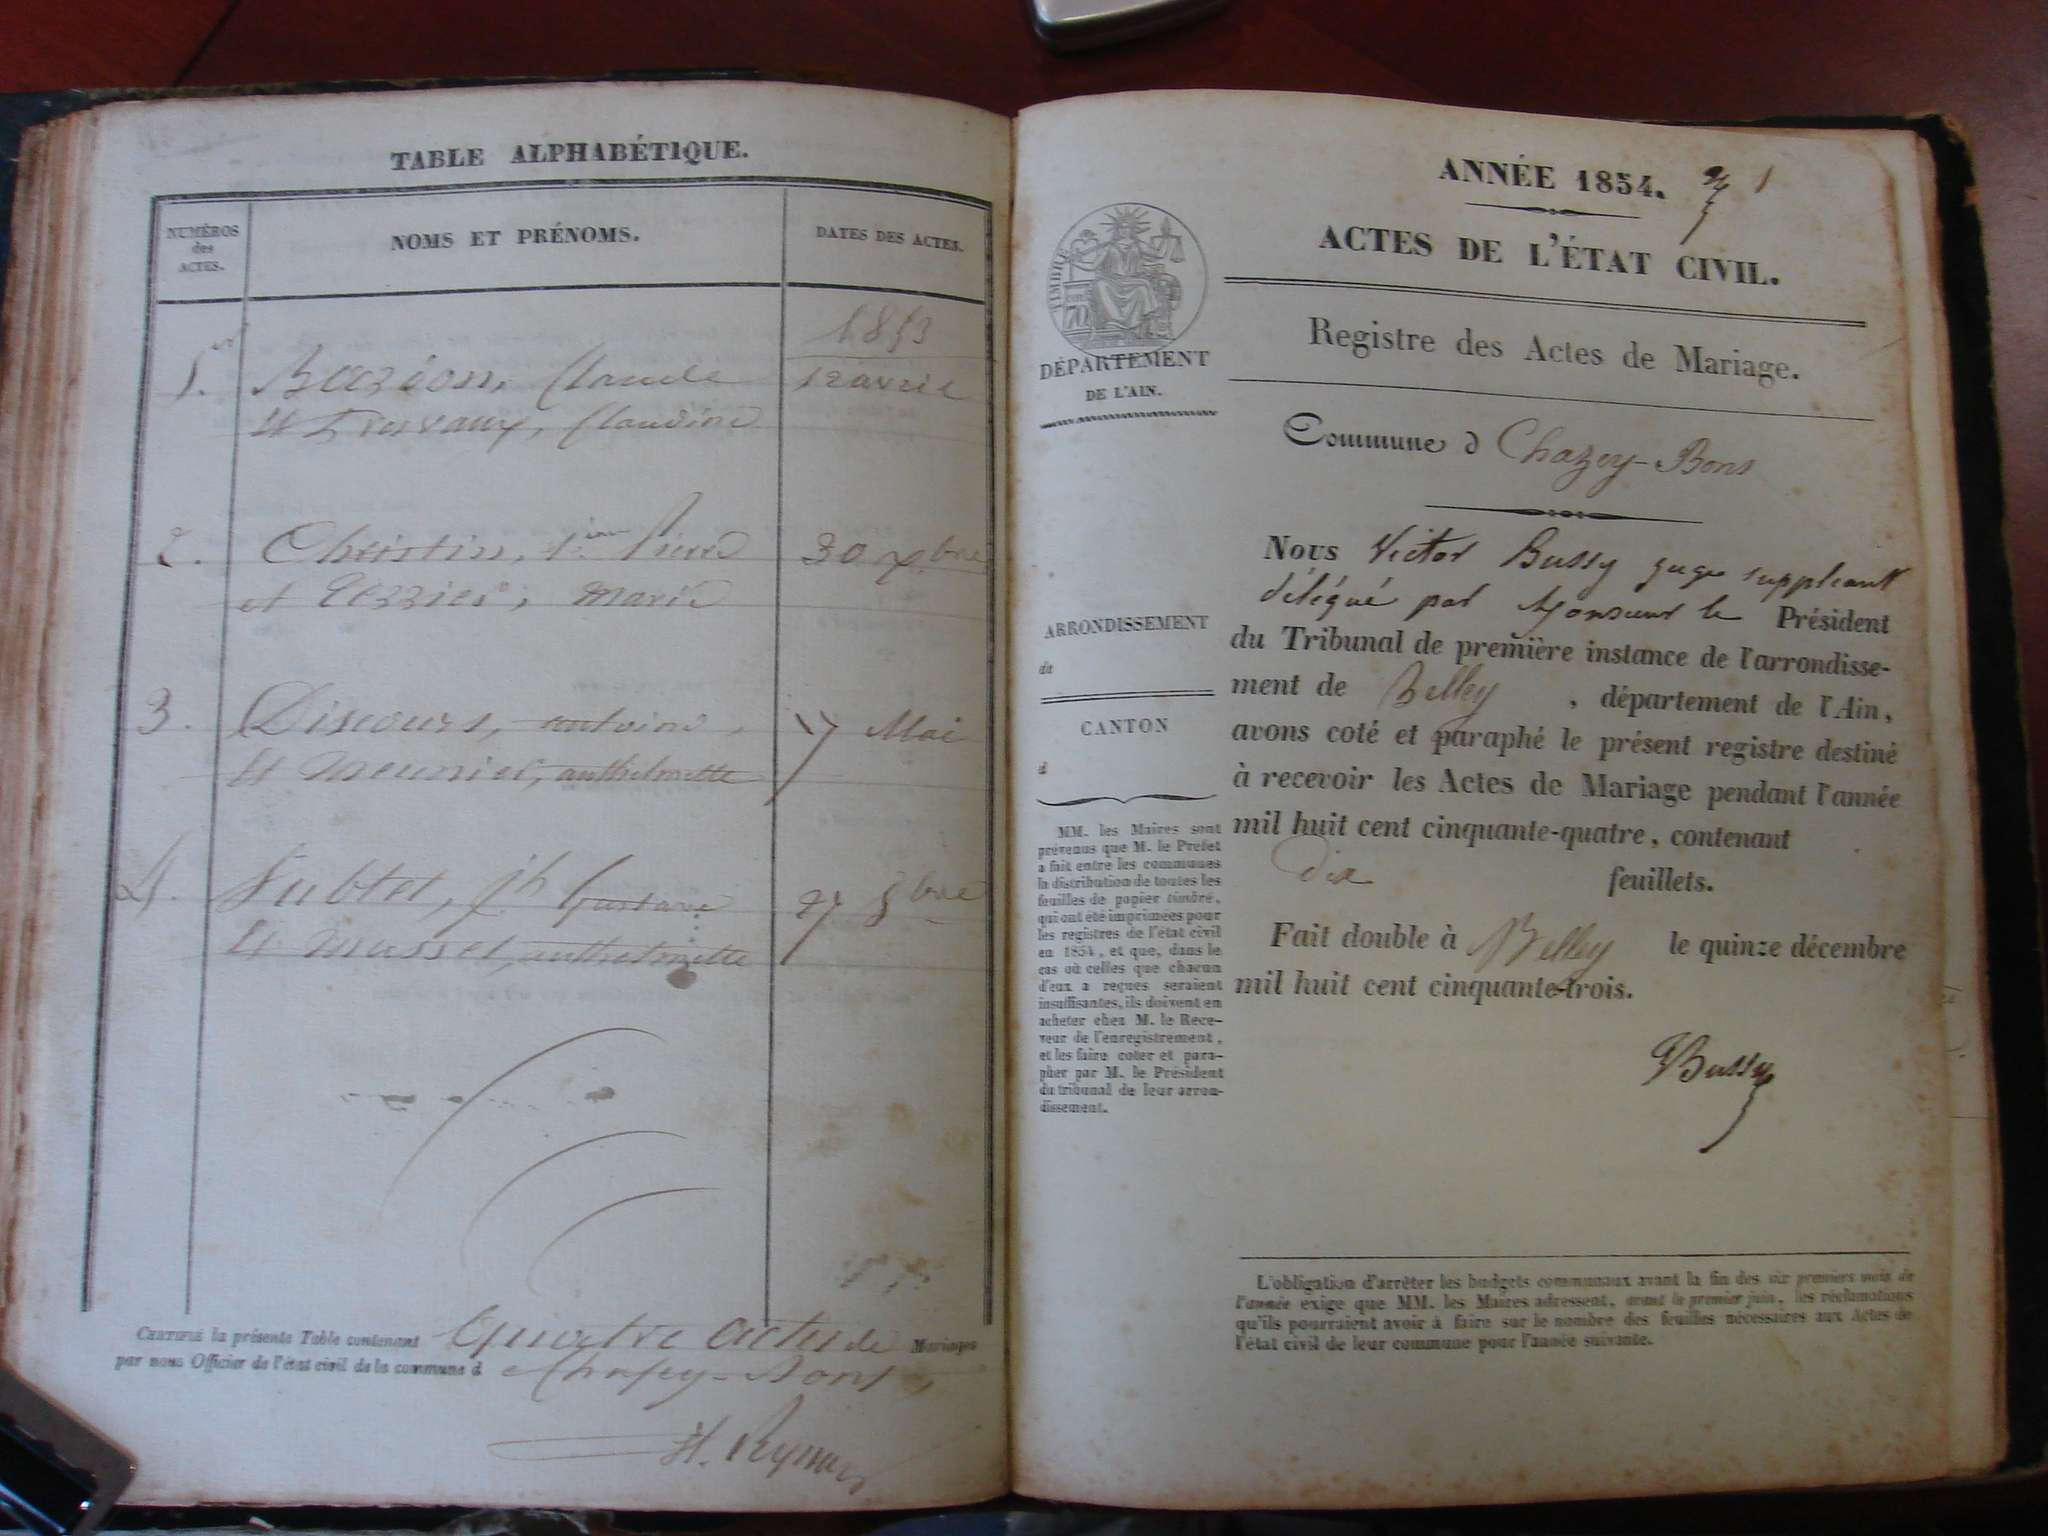 TABLE ALPHABÉTIQUE.
NUMÉROS
des
ACTES.
NOMS ET PRÉNOMS.
DATES DES ACTES.
1853
1er. Bozion, Claude 12 avril
Et Trevaux, Claudine
2. Christin, Pierre 30 xbre
et Tezzier, marie
3. Discours, antoine, 17 Mai
Et meunier, anthelmette
4. Jubtet, jh Gustave 27 8bre
Et Musset, anthelmette
CERTIFIÉ la présente Table contenant Quatre actes de Mariages
par nous Officier de l'état civil de la commune de Chazey-Bons,
ANNÉE 1854. 1
ACTES DE L'ÉTAT CIVIL.
Registre des Actes de Mariage.
TIMBRE
70
DÉPARTEMENT
DE L'AIN.
Commune d Chazey-Bons
Nous Victor Bussy juge suppleant
délégué par Monsieur le Président
du Tribunal de première instance de l'arrondisse-
ment de Belley, département de l'Ain,
avons coté et paraphé le présent registre destiné
à recevoir les Actes de Mariage pendant l'année
mil huit cent cinquante-quatre, contenant
dix feuillets.
Fait double à Belley le quinze décembre
mil huit cent cinquante-trois.
VBussy
ARRONDISSEMENT
de
CANTON
d
MM. les Maires sont
prévenus que M. le Prefet
a fait entre les communes
la distribution de toutes les
feuilles de papier timbré,
qui ont été imprimées pour
les registres de l'état civil
en 1854, et que, dans le
cas où celles que chacun
d'eux a reçues seraient
insuffisantes, ils doivent en
acheter chez M. le Rece-
veur de l'enregistrement,
et les faire coter et para-
pher par M. le Président
du tribunal de leur arron-
dissement.
L'obligation d'arrêter les budgets communaux avant la fin des six premiers mois de
l'année exige que MM. les Maires adressent, avant le premier juin, les réclamations
qu'ils pourraient avoir à faire sur le nombre des feuilles nécessaires aux Actes de
l'état civil de leur commune pour l'année suivante.